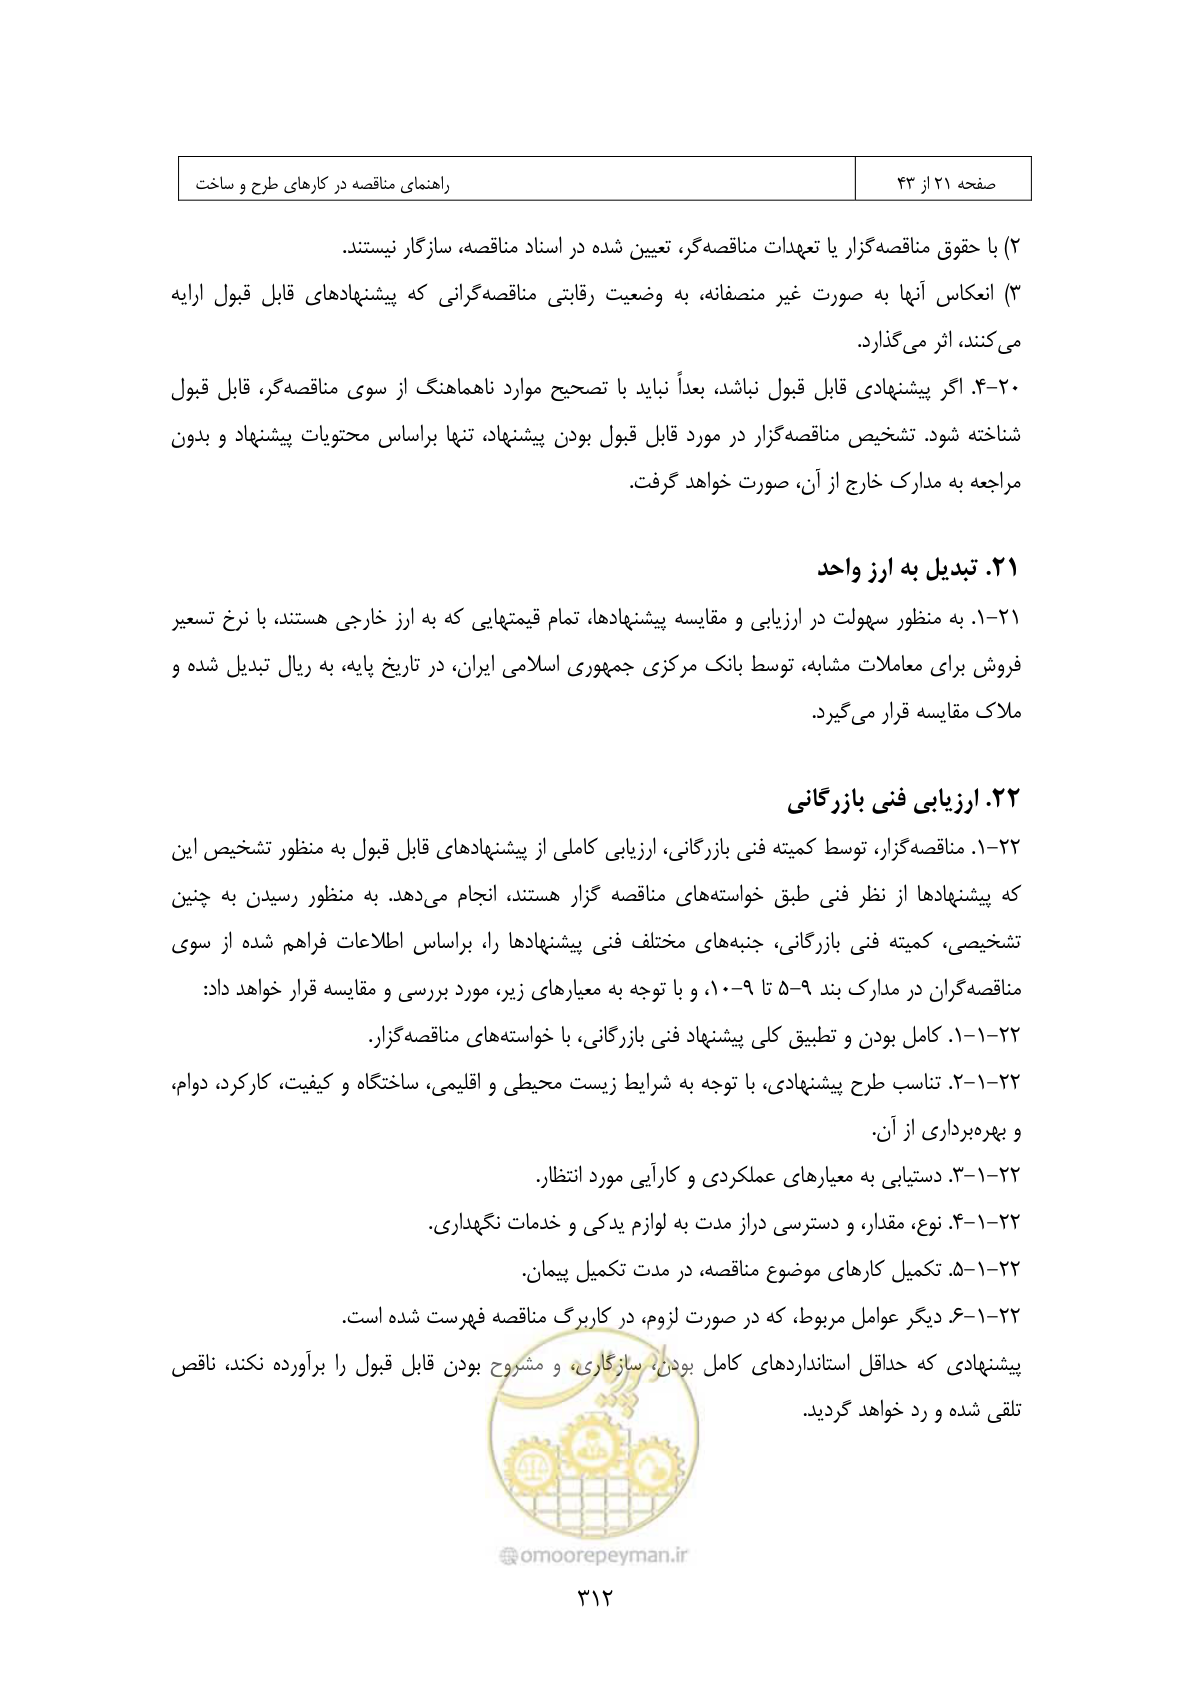 صفحه ۲۱ از ۴۳
راهنمای مناقصه در کارهای طرح و ساخت
۲) با حقوق مناقصه‌گزار یا تعهدات مناقصه‌گر، تعیین شده در اسناد مناقصه، سازگار نیستند.
۳) انعکاس آنها به صورت غیر منصفانه، به وضعیت رقابتی مناقصه‌گرانی که پیشنهادهای قابل قبول ارایه
می‌کنند، اثر می‌گذارد.
۲۰-۴. اگر پیشنهادی قابل قبول نباشد، بعداً نباید با تصحیح موارد ناهماهنگ از سوی مناقصه‌گر، قابل قبول
شناخته شود. تشخیص مناقصه‌گزار در مورد قابل قبول بودن پیشنهاد، تنها براساس محتویات پیشنهاد و بدون
مراجعه به مدارک خارج از آن، صورت خواهد گرفت.
۲۱. تبدیل به ارز واحد
۲۱-۱. به منظور سهولت در ارزیابی و مقایسه پیشنهادها، تمام قیمتهایی که به ارز خارجی هستند، با نرخ تسعیر
فروش برای معاملات مشابه، توسط بانک مرکزی جمهوری اسلامی ایران، در تاریخ پایه، به ریال تبدیل شده و
ملاک مقایسه قرار می‌گیرد.
۲۲. ارزیابی فنی بازرگانی
۲۲-۱. مناقصه‌گزار، توسط کمیته فنی بازرگانی، ارزیابی کاملی از پیشنهادهای قابل قبول به منظور تشخیص این
که پیشنهادها از نظر فنی طبق خواسته‌های مناقصه گزار هستند، انجام می‌دهد. به منظور رسیدن به چنین
تشخیصی، کمیته فنی بازرگانی، جنبه‌های مختلف فنی پیشنهادها را، براساس اطلاعات فراهم شده از سوی
مناقصه‌گران در مدارک بند ۹-۵ تا ۹-۱۰، و با توجه به معیارهای زیر، مورد بررسی و مقایسه قرار خواهد داد:
۲۲-۱-۱. کامل بودن و تطبیق کلی پیشنهاد فنی بازرگانی، با خواسته‌های مناقصه‌گزار.
۲۲-۱-۲. تناسب طرح پیشنهادی، با توجه به شرایط زیست محیطی و اقلیمی، ساختگاه و کیفیت، کارکرد، دوام،
و بهره‌برداری از آن.
۲۲-۱-۳. دستیابی به معیارهای عملکردی و کارآیی مورد انتظار.
۲۲-۱-۴. نوع، مقدار، و دسترسی دراز مدت به لوازم یدکی و خدمات نگهداری.
۲۲-۱-۵. تکمیل کارهای موضوع مناقصه، در مدت تکمیل پیمان.
۲۲-۱-۶. دیگر عوامل مربوط، که در صورت لزوم، در کاربرگ مناقصه فهرست شده است.
پیشنهادی که حداقل استانداردهای کامل بودن، سازگاری، و مشروح بودن قابل قبول را برآورده نکند، ناقص
تلقی شده و رد خواهد گردید.
امور پیمان
omoorepeyman.ir
۳۱۲